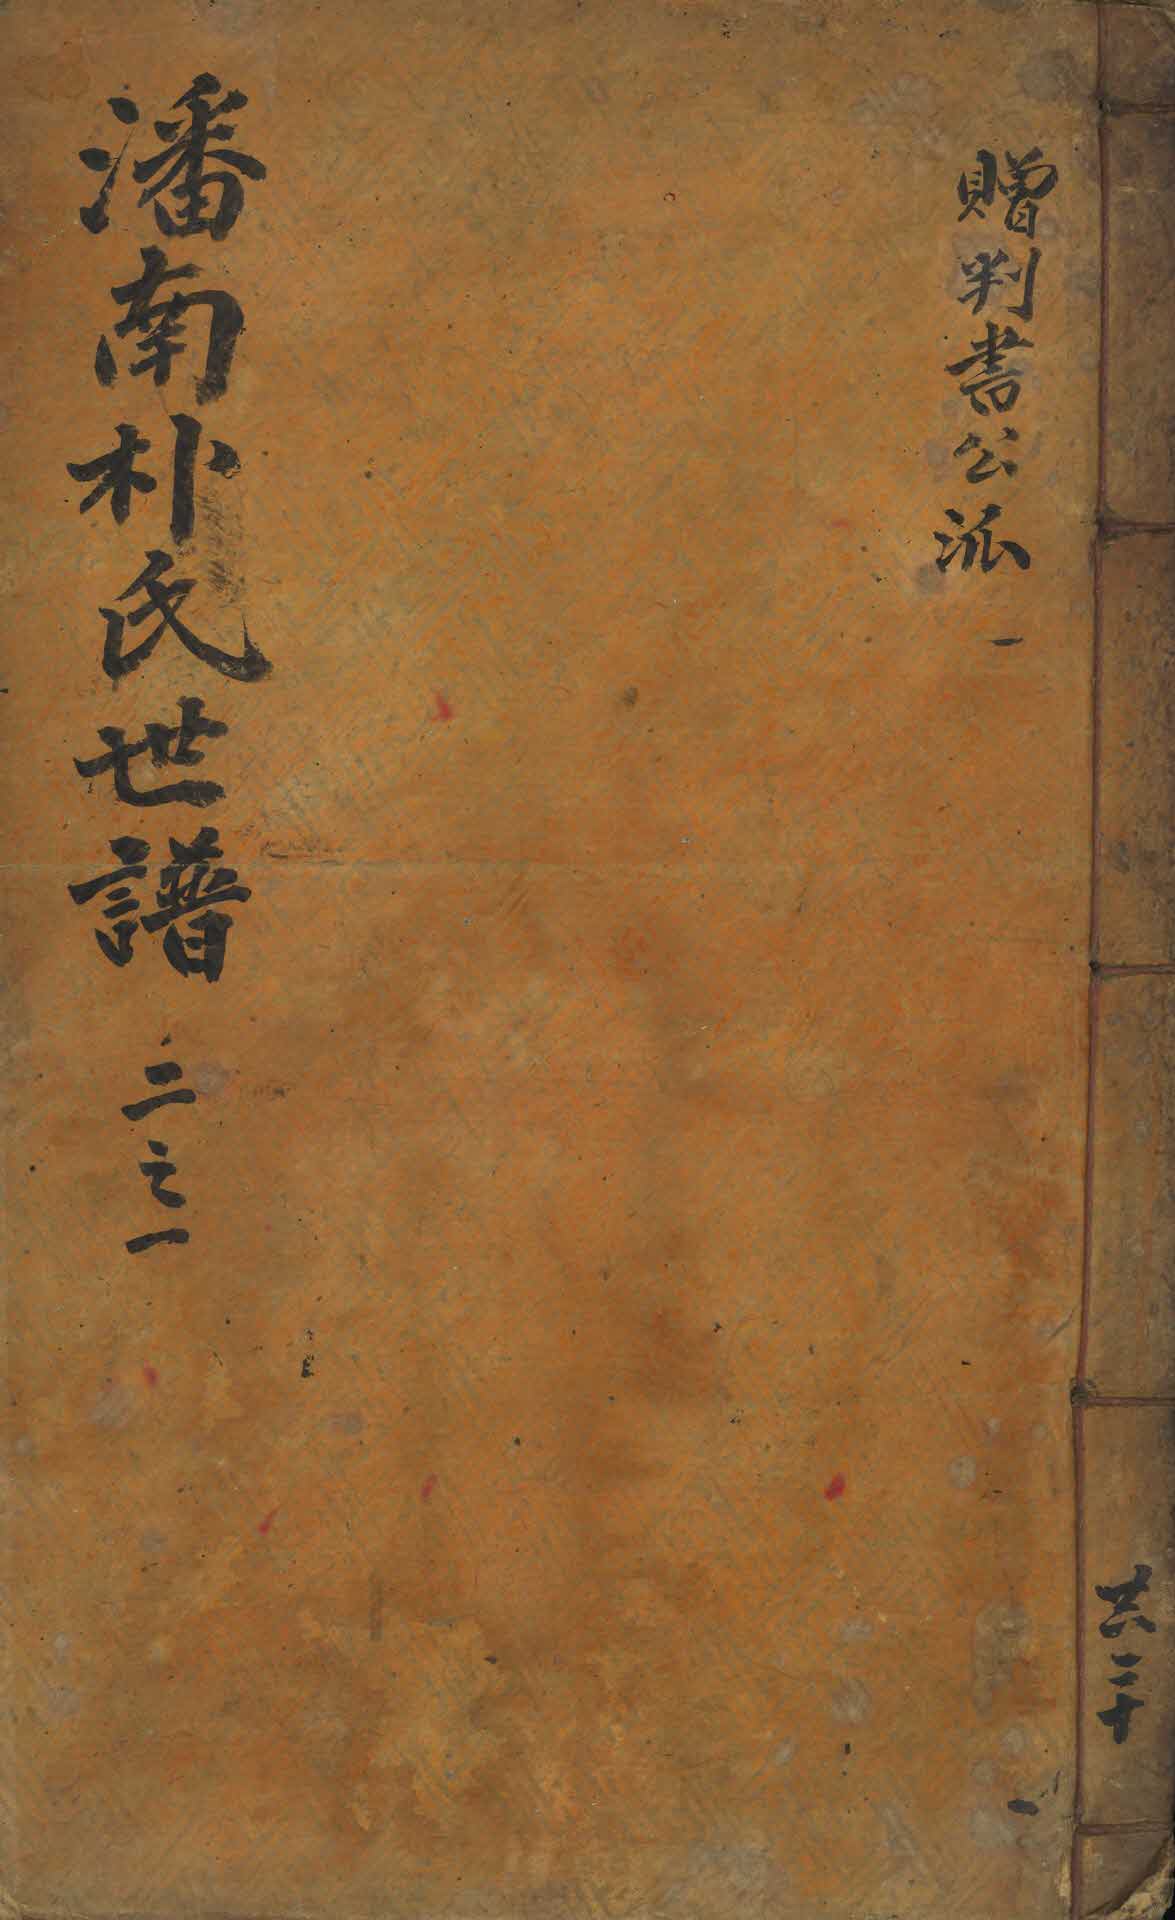 共二十
贈判書公派 一
一
潘南朴氏世譜 二之一